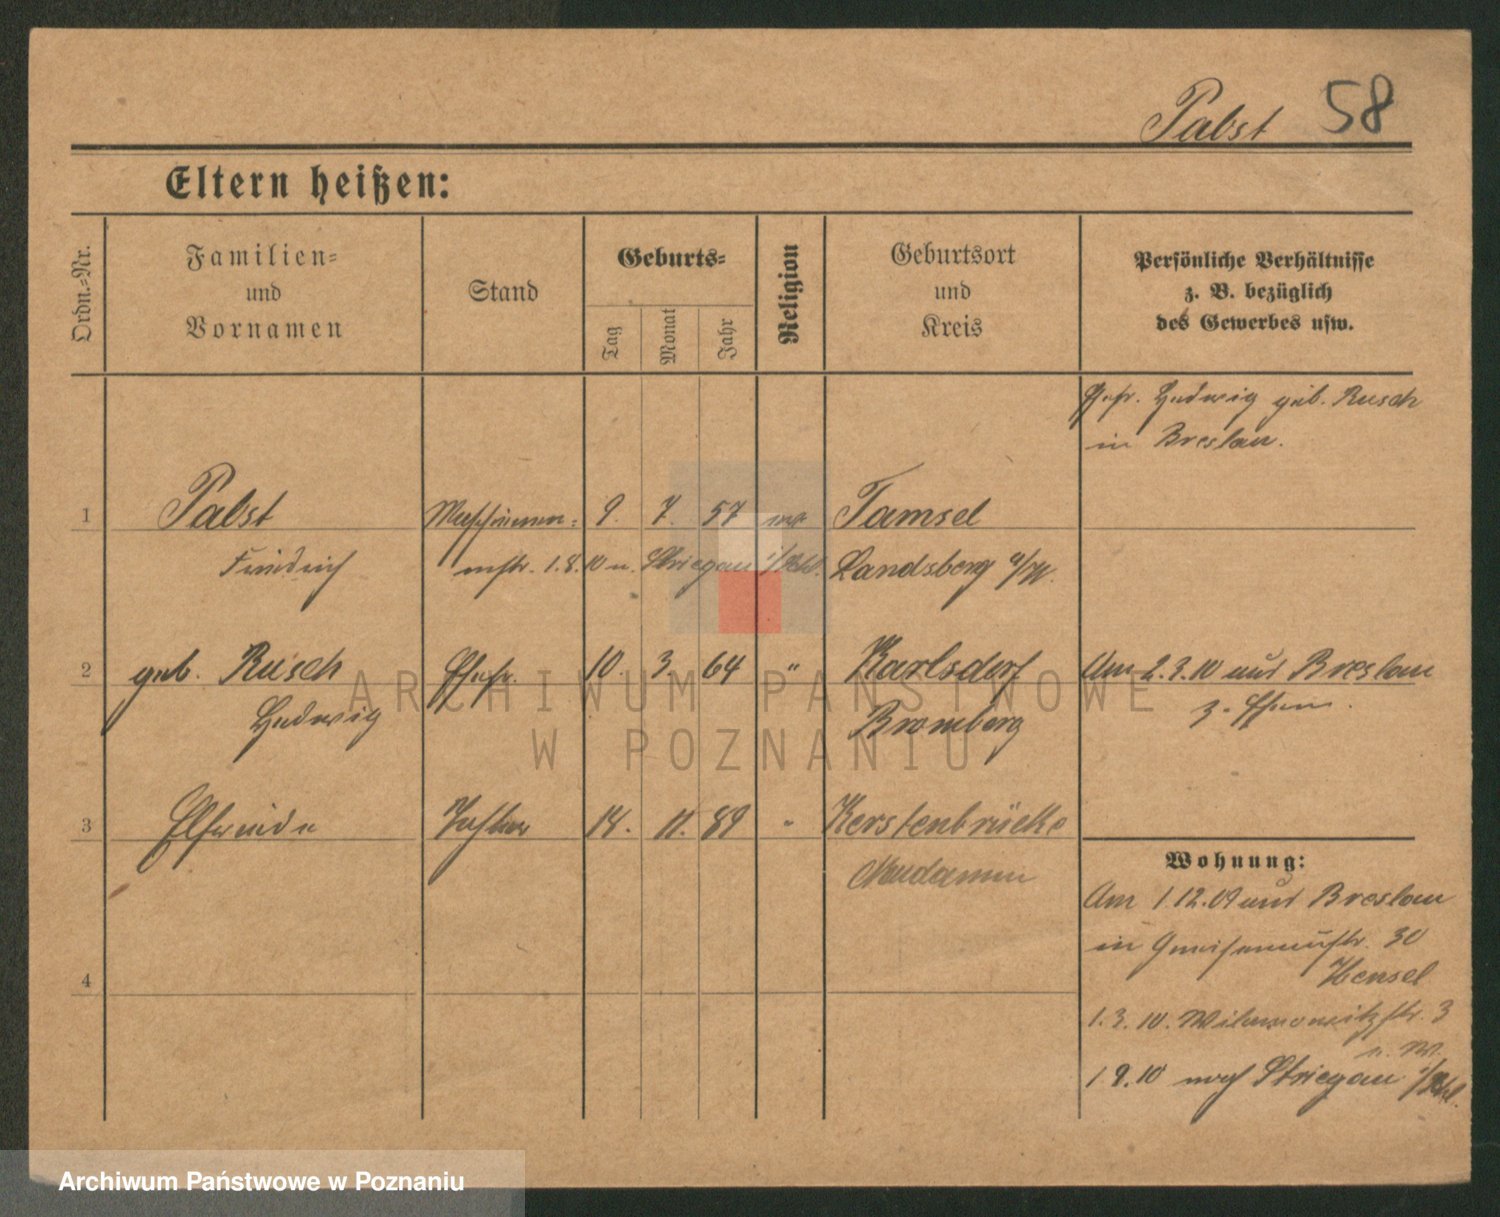 Pabst 58
Eltern heißen:
Ordn.-Nr.
Familien-
und
Vornamen
Stand
Geburts-
Tag
Monat
Jahr
Religion
Geburtsort
und
Kreis
Persönliche Verhältnisse
z. B. bezüglich
des Gewerbes usw.
Ehefr. Hedwig geb. Rusch
in Breslau.
1 Pabst Maschinen- 9. 7. 57 Tamsel
Friedrich mstr. 1.8.10 n. Striegau i/Schl. Landsberg a/W.
2 geb. Rusch Ehefr. 10. 3. 64 " Karlsdorf Am 2.3.10 aus Breslau
Hedwig Bromberg z. Ehem.
3 Elfriede Tochter 14. 11. 89 " Kerstenbrücke
Neudamm
4
Wohnung:
Am 1.12.09 aus Breslau
in Gneisenaustr. 30
Hensel
1.3.10. Wilamowitzstr. 3
n. W.
1 9.10 nach Striegau i/Schl.
ARCHIWUM PAŃSTWOWE
W POZNANIU
Archiwum Państwowe w Poznaniu